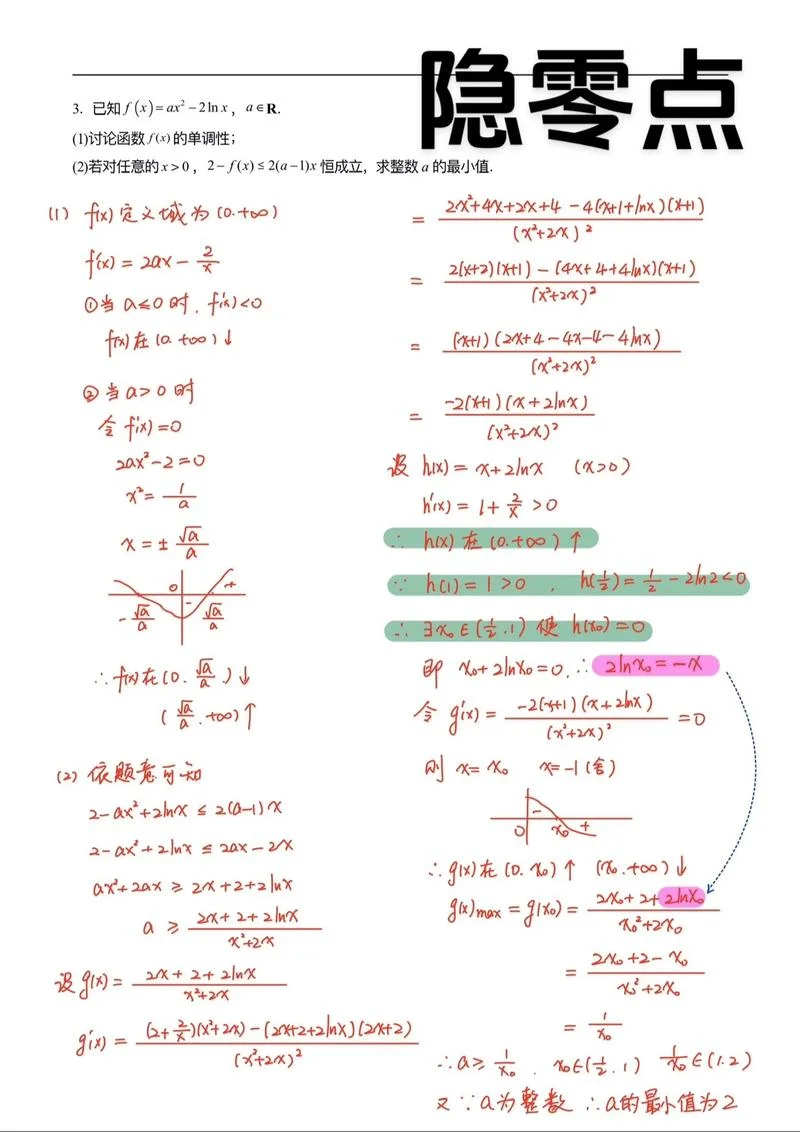 隐零点
3. 已知 f(x)=ax²−2ln x，a∈R.
(1)讨论函数 f(x) 的单调性；
(2)若对任意的 x>0，2−f(x)≤2(a−1)x 恒成立，求整数 a 的最小值.
(1) f(x)定义域为(0.+∞)
f'(x) = 2ax − 2/x
①当 a≤0 时. f'(x)<0
f(x)在(0.+∞)↓
②当 a>0 时
令 f'(x)=0
2ax²−2=0
x² = 1/a
x = ± √a/a
0 − +
−√a/a √a/a
∴ f(x)在(0. √a/a)↓
(√a/a .+∞)↑
(2) 依题意可知
2−ax²+2lnx ≤ 2(a−1)x
2−ax²+2lnx ≤ 2ax−2x
ax²+2ax ≥ 2x+2+2lnx
a ≥ (2x+2+2lnx)/(x²+2x)
设 g(x) = (2x+2+2lnx)/(x²+2x)
g'(x) = [(2+2/x)(x²+2x)−(2x+2+2lnx)(2x+2)]/(x²+2x)²
= [2x²+4x+2x+4−4(x+1+lnx)(x+1)]/(x²+2x)²
= [2(x+2)(x+1)−(4x+4+4lnx)(x+1)]/(x²+2x)²
= (x+1)(2x+4−4x−4−4lnx)/(x²+2x)²
= −2(x+1)(x+2lnx)/(x²+2x)²
设 h(x) = x+2lnx (x>0)
h'(x) = 1+2/x >0
∴ h(x)在(0.+∞)↑
∵ h(1)=1>0 , h(1/2)=1/2−2ln2<0
∴ ∃x₀∈(1/2.1)使 h(x₀)=0
即 x₀+2lnx₀=0. ∴ 2lnx₀=−x
令 g'(x) = −2(x+1)(x+2lnx)/(x²+2x)² =0
则 x=x₀ x=−1(舍)
− +
0 x₀
∴ g(x)在(0. x₀)↑ (x₀.+∞)↓
g(x)max = g(x₀) = (2x₀+2+2lnx₀)/(x₀²+2x₀)
= (2x₀+2−x₀)/(x₀²+2x₀)
= 1/x₀
∴ a≥1/x₀ . x₀∈(1/2.1) 1/x₀∈(1.2)
又∵a为整数 ∴a的最小值为2